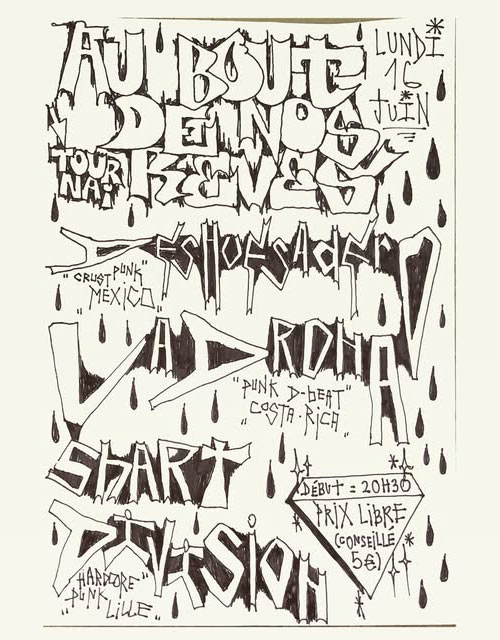 AU BOUT
DE NOS
RÊVES
TOUR
NAi
LUNDI
16
JUiN
DéSHUESADérO
"CRUST PUNK"
MEXICO"
"PUNK D-bEAT"
"COSTA-RICA"
ShART
DIViSiOn
"HARDCORE"
PUNK
"LiLLE"
DÉBUT = 20H30
PRIX LiBRE
(CONSEILLÉ
5€)